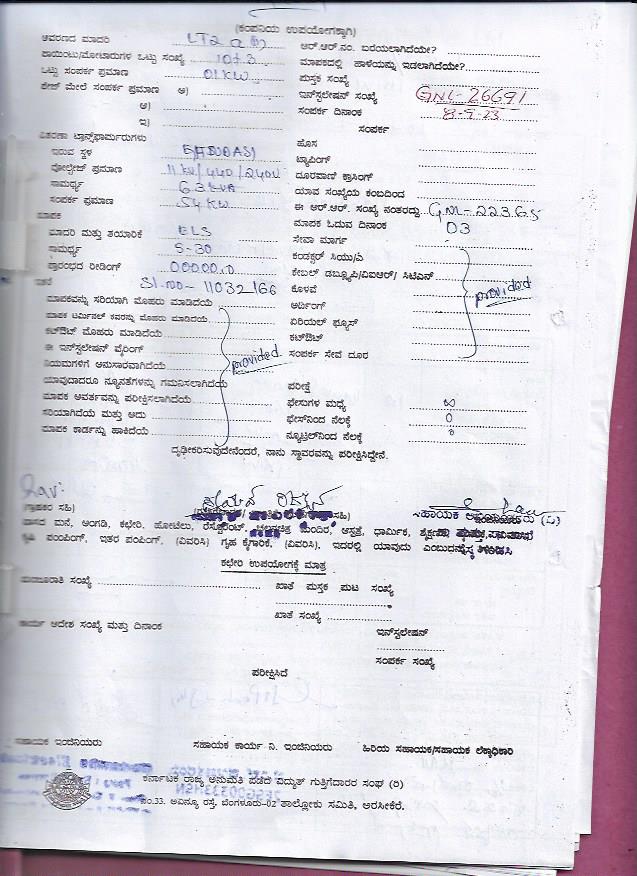 (ಕಂಪನಿಯ ಉಪಯೋಗಕ್ಕಾಗಿ)
ಆವರಣದ ಮಾದರಿ LT2 a ಆರ್.ಆರ್.ನಂ. ಬರೆಯಲಾಗಿದೆಯೇ?
ಪಾಯಿಂಟು/ಮೋಟಾರುಗಳ ಒಟ್ಟು ಸಂಖ್ಯೆ 10+3 ಮಾಪಕದಲ್ಲಿ ಹಾಳೆಯನ್ನು ಇಡಲಾಗಿದೆಯೇ?
ಒಟ್ಟು ಸಂಪರ್ಕ ಪ್ರಮಾಣ 01KW ಪುಸ್ತಕ ಸಂಖ್ಯೆ
ಫೇಜ್ ಮೇಲೆ ಸಂಪರ್ಕ ಪ್ರಮಾಣ ಅ) ಇನ್‌ಸ್ಟಲೇಷನ್ ಸಂಖ್ಯೆ GNL-26691
ಆ) ಸಂಪರ್ಕ ದಿನಾಂಕ 8-9-23
ಇ) ಸಂಪರ್ಕ
ವಿತರಣಾ ಟ್ರಾನ್ಸ್‌ಫಾರ್ಮರುಗಳು ಹೊಸ
ಇರುವ ಸ್ಥಳ ಟ್ಯಾಪಿಂಗ್
ವೋಲ್ಟೇಜ್ ಪ್ರಮಾಣ 11KV/440/240V ದೂರವಾಣಿ ಕ್ರಾಸಿಂಗ್
ಸಾಮರ್ಥ್ಯ 63KVA ಯಾವ ಸಂಖ್ಯೆಯ ಕಂಬದಿಂದ
ಸಂಪರ್ಕ ಪ್ರಮಾಣ 54KW ಈ ಆರ್.ಆರ್. ಸಂಖ್ಯೆ ನಂತರದ್ದು GNL-22365
ಮಾಪಕ ಮಾಪಕ ಓದುವ ದಿನಾಂಕ 03
ಮಾದರಿ ಮತ್ತು ತಯಾರಿಕೆ ELS ಸೇವಾ ಮಾರ್ಗ
ಸಾಮರ್ಥ್ಯ 5-30 ಕಂಡಕ್ಟರ್ ಸಿಯು/ಎ
ಪ್ರಾರಂಭದ ರೀಡಿಂಗ್ 00000.0 ಕೇಬಲ್ ಡಬ್ಲ್ಯೂಪಿ/ವಿಐಆರ್/ ಸಿಟಿಎಸ್
Sl.no- 11032166 ಕೊಳವೆ
ಮಾಪಕವನ್ನು ಸರಿಯಾಗಿ ಮೊಹರು ಮಾಡಿದೆಯೆ ಅರ್ಥಿಂಗ್ provided
ಮಾಪಕ ಟರ್ಮಿನಲ್ ಕವರನ್ನು ಮೊಹರು ಮಾಡಿದೆಯೆ ಏರಿಯಲ್ ಫ್ಯೂಸ್
ಕಟ್‌ಔಟ್ ಮೊಹರು ಮಾಡಿದೆಯೆ ಕಟ್‌ಔಟ್
ಈ ಇನ್‌ಸ್ಟಲೇಷನ್ ವೈರಿಂಗ್ provided ಸಂಪರ್ಕ ಸೇವೆ ದೂರ
ನಿಯಮಗಳಿಗೆ ಅನುಸಾರವಾಗಿದೆಯೆ
ಯಾವುದಾದರೂ ನ್ಯೂನತೆಗಳನ್ನು ಗಮನಿಸಲಾಗಿದೆಯೆ ಪರೀಕ್ಷೆ
ಮಾಪಕ ಆವರ್ತವನ್ನು ಪರೀಕ್ಷಿಸಲಾಗಿದೆಯೆ ಫೇಸುಗಳ ಮಧ್ಯೆ ∞
ಸರಿಯಾಗಿದೆಯೆ ಮತ್ತು ಅದು ಫೇಸ್‌ನಿಂದ ನೆಲಕ್ಕೆ 0
ಮಾಪಕ ಕಾರ್ಡನ್ನು ಹಾಕಿದೆಯೆ ನ್ಯೂಟ್ರಲ್‌ನಿಂದ ನೆಲಕ್ಕೆ
ದೃಢೀಕರಿಸುವುದೇನೆಂದರೆ, ನಾನು ಸ್ಥಾವರವನ್ನು ಪರೀಕ್ಷಿಸಿದ್ದೇನೆ.
(ಗ್ರಾಹಕರ ಸಹಿ)
ವಾಸದ ಮನೆ, ಅಂಗಡಿ, ಕಛೇರಿ, ಹೋಟೆಲು, ರೆಸ್ಟೋರೆಂಟ್, ಚಲನಚಿತ್ರ ಮಂದಿರ, ಆಸ್ಪತ್ರೆ, ಧಾರ್ಮಿಕ,
ಕೃಷಿ ಪಂಪಿಂಗ್, ಇತರ ಪಂಪಿಂಗ್, (ವಿವರಿಸಿ) ಗೃಹ ಕೈಗಾರಿಕೆ, (ವಿವರಿಸಿ), ಇದರಲ್ಲಿ ಯಾವುದು
ಕಛೇರಿ ಉಪಯೋಗಕ್ಕೆ ಮಾತ್ರ
ಮಂಜೂರಾತಿ ಸಂಖ್ಯೆ ಖಾತೆ ಪುಸ್ತಕ ಪುಟ ಸಂಖ್ಯೆ
ಖಾತೆ ಸಂಖ್ಯೆ
ಕಾರ್ಯ ಆದೇಶ ಸಂಖ್ಯೆ ಮತ್ತು ದಿನಾಂಕ ಇನ್‌ಸ್ಟಲೇಷನ್
ಸಂಪರ್ಕ ಸಂಖ್ಯೆ
ಪರೀಕ್ಷಿಸಿದೆ
ಸಹಾಯಕ ಇಂಜಿನಿಯರು ಸಹಾಯಕ ಕಾರ್ಯ ನಿ. ಇಂಜಿನಿಯರು ಹಿರಿಯ ಸಹಾಯಕ/ಸಹಾಯಕ ಲೆಕ್ಕಾಧಿಕಾರಿ
ಕರ್ನಾಟಕ ರಾಜ್ಯ ಅನುಮತಿ ಪಡೆದ ವಿದ್ಯುತ್ ಗುತ್ತಿಗೆದಾರರ ಸಂಘ (ರಿ)
ನಂ.33. ಅವಿನ್ಯೂ ರಸ್ತೆ, ಬೆಂಗಳೂರು-02 ತಾಲ್ಲೋಕು ಸಮಿತಿ, ಅರಸೀಕೆರೆ.